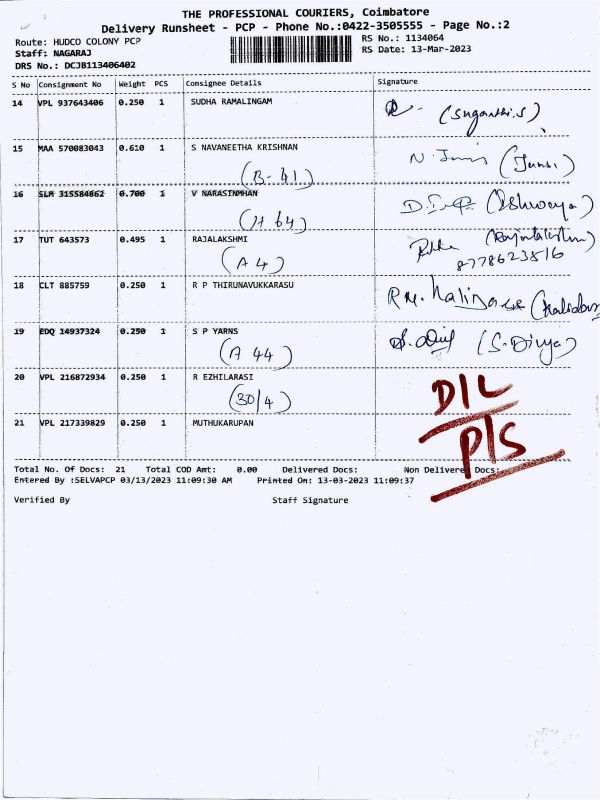 THE PROFESSIONAL COURIERS, Coimbatore
Delivery Runsheet - PCP - Phone No.:0422-3505555 - Page No.:2
Route: HUDCO COLONY PCP RS No.: 1134064
Staff: NAGARAJ RS Date: 13-Mar-2023
DRS No.: DCJB113406402
S No Consignment No Weight PCS Consignee Details Signature
14 VPL 937643406 0.250 1 SUDHA RAMALINGAM
(Suganthi.S)
15 MAA 570083043 0.610 1 S NAVANEETHA KRISHNAN
(B-41)
16 SLM 315584862 0.700 1 V NARASINMHAN
(H 64) (Ishwarya)
17 TUT 643573 0.495 1 RAJALAKSHMI
(A 4) 8778623516
18 CLT 885759 0.250 1 R P THIRUNAVUKKARASU
19 EDQ 14937324 0.250 1 S P YARNS
(A 44) (S.Divya)
20 VPL 216872934 0.250 1 R EZHILARASI
(30/4) D/L
21 VPL 217339829 0.250 1 MUTHUKARUPAN P/S
Total No. Of Docs: 21 Total COD Amt: 0.00 Delivered Docs: Non Delivered Docs:
Entered By :SELVAPCP 03/13/2023 11:09:30 AM Printed On: 13-03-2023 11:09:37
Verified By Staff Signature